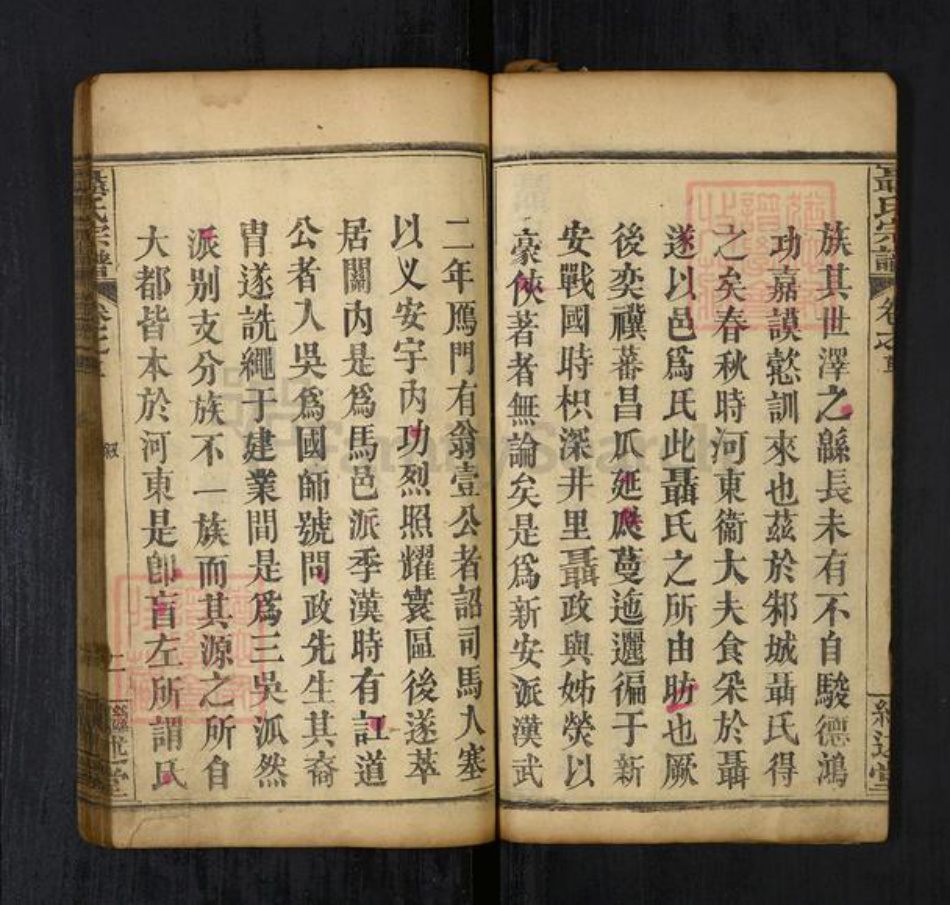 族其世澤之緜長未有不自駿德鴻
功嘉謨懿訓來也茲於邾城聶氏得
之矣春秋時河東衞大夫食采於聶
遂以邑爲氏此聶氏之所由昉也厥
後奕禩蕃昌瓜延瓞蔓迤邐徧于新
安戰國時枳深井里聶政與姊榮以
豪俠著者無論矣是爲新安派漢武
二年鴈門有翁壹公者詔司馬大塞
以乂安宇內功烈照耀寰區後遂萃
居關內是爲馬邑派季漢時有訌道
公者入吳爲國師號問政先生其裔
胄遂詵繩于建業間是爲三吳派然
派别支分族不一族而其源之所自
大都皆本於河東是卽盲左所謂氏
聶氏宗譜
卷之
敘
聶氏宗譜
卷之
堂
FamilySearch